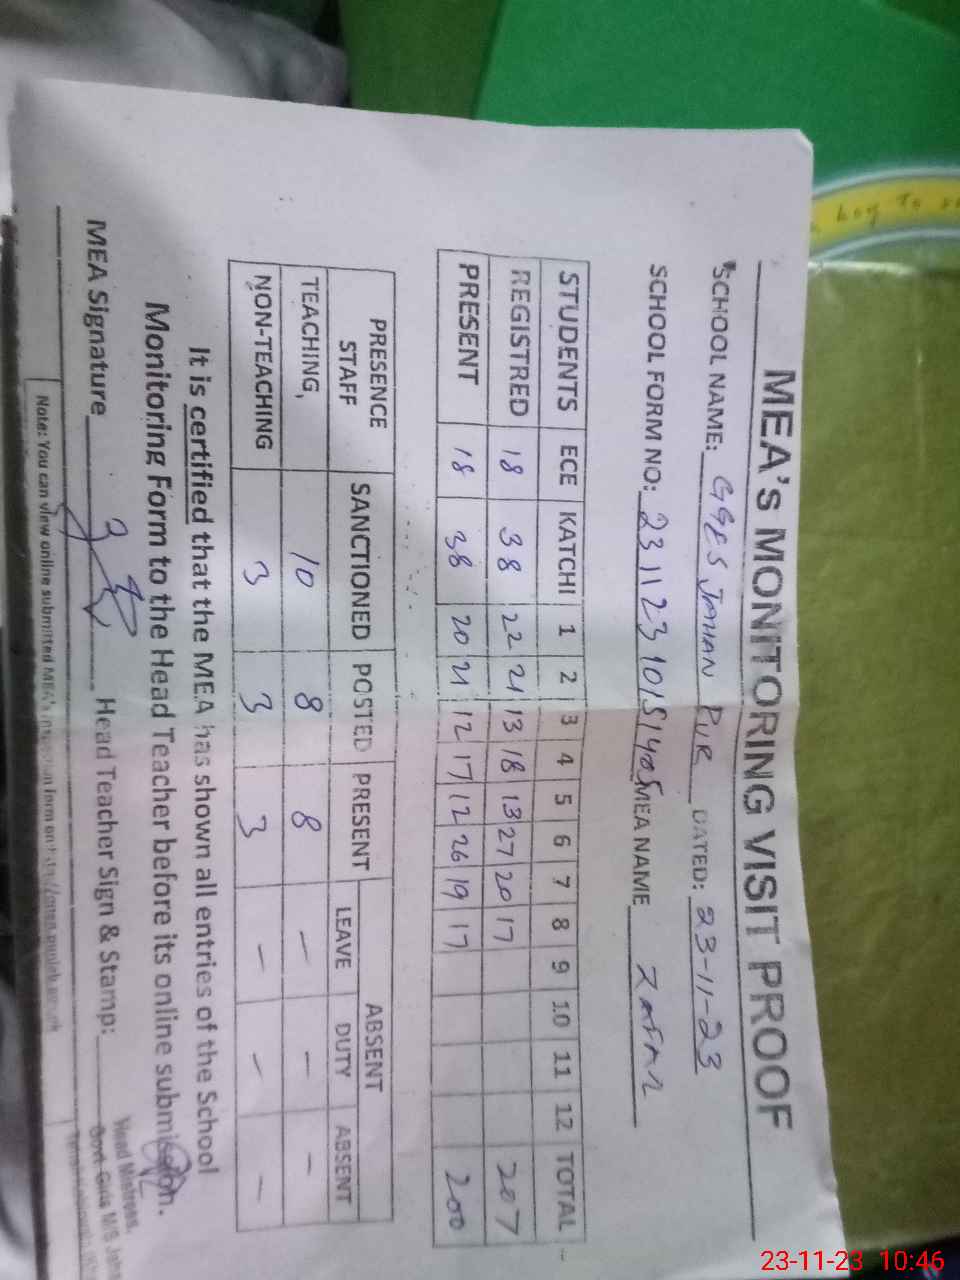 MEA's MONITORING VISIT PROOF
SCHOOL NAME: GGES JAHAN PUR DATED: 23-11-23
SCHOOL FORM NO: 23112310151405 MEA NAME Zafar
STUDENTS ECE KATCHI 1 2 3 4 5 6 7 8 9 10 11 12 TOTAL
REGISTRED 18 38 22 21 13 18 13 27 20 17 207
PRESENT 18 38 20 21 12 17 12 26 19 17 200
PRESENCE STAFF SANCTIONED POSTED PRESENT ABSENT
LEAVE DUTY ABSENT
TEACHING, 10 8 8 - - -
NON-TEACHING 3 3 3 - - -
It is certified that the MEA has shown all entries of the School
Monitoring Form to the Head Teacher before its online submission.
MEA Signature Head Teacher Sign & Stamp:
Head Mistress,
Govt. Girls M/S
Note: You can view online submitted MEA's form on
key To
23-11-23 10:46